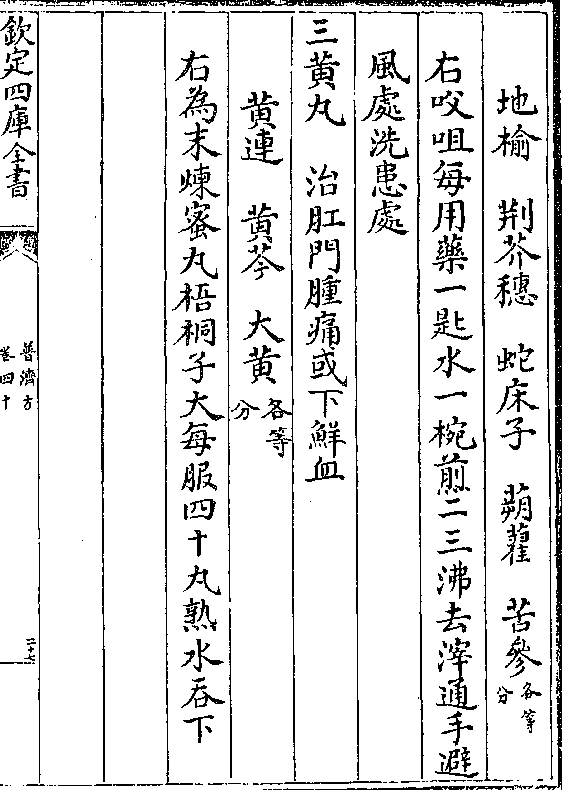 地榆 荆芥穗 蛇床子 蒴藋 苦參各等分
右㕮咀每用藥一匙水一椀煎二三沸去滓通手避
風處洗患處
三黄丸 治肛門腫痛或下鮮血
黄連 黄芩 大黄各等分
右為末煉蜜丸梧桐子大每服四十丸熟水吞下
欽定四庫全書
普濟方
卷四十
二十七